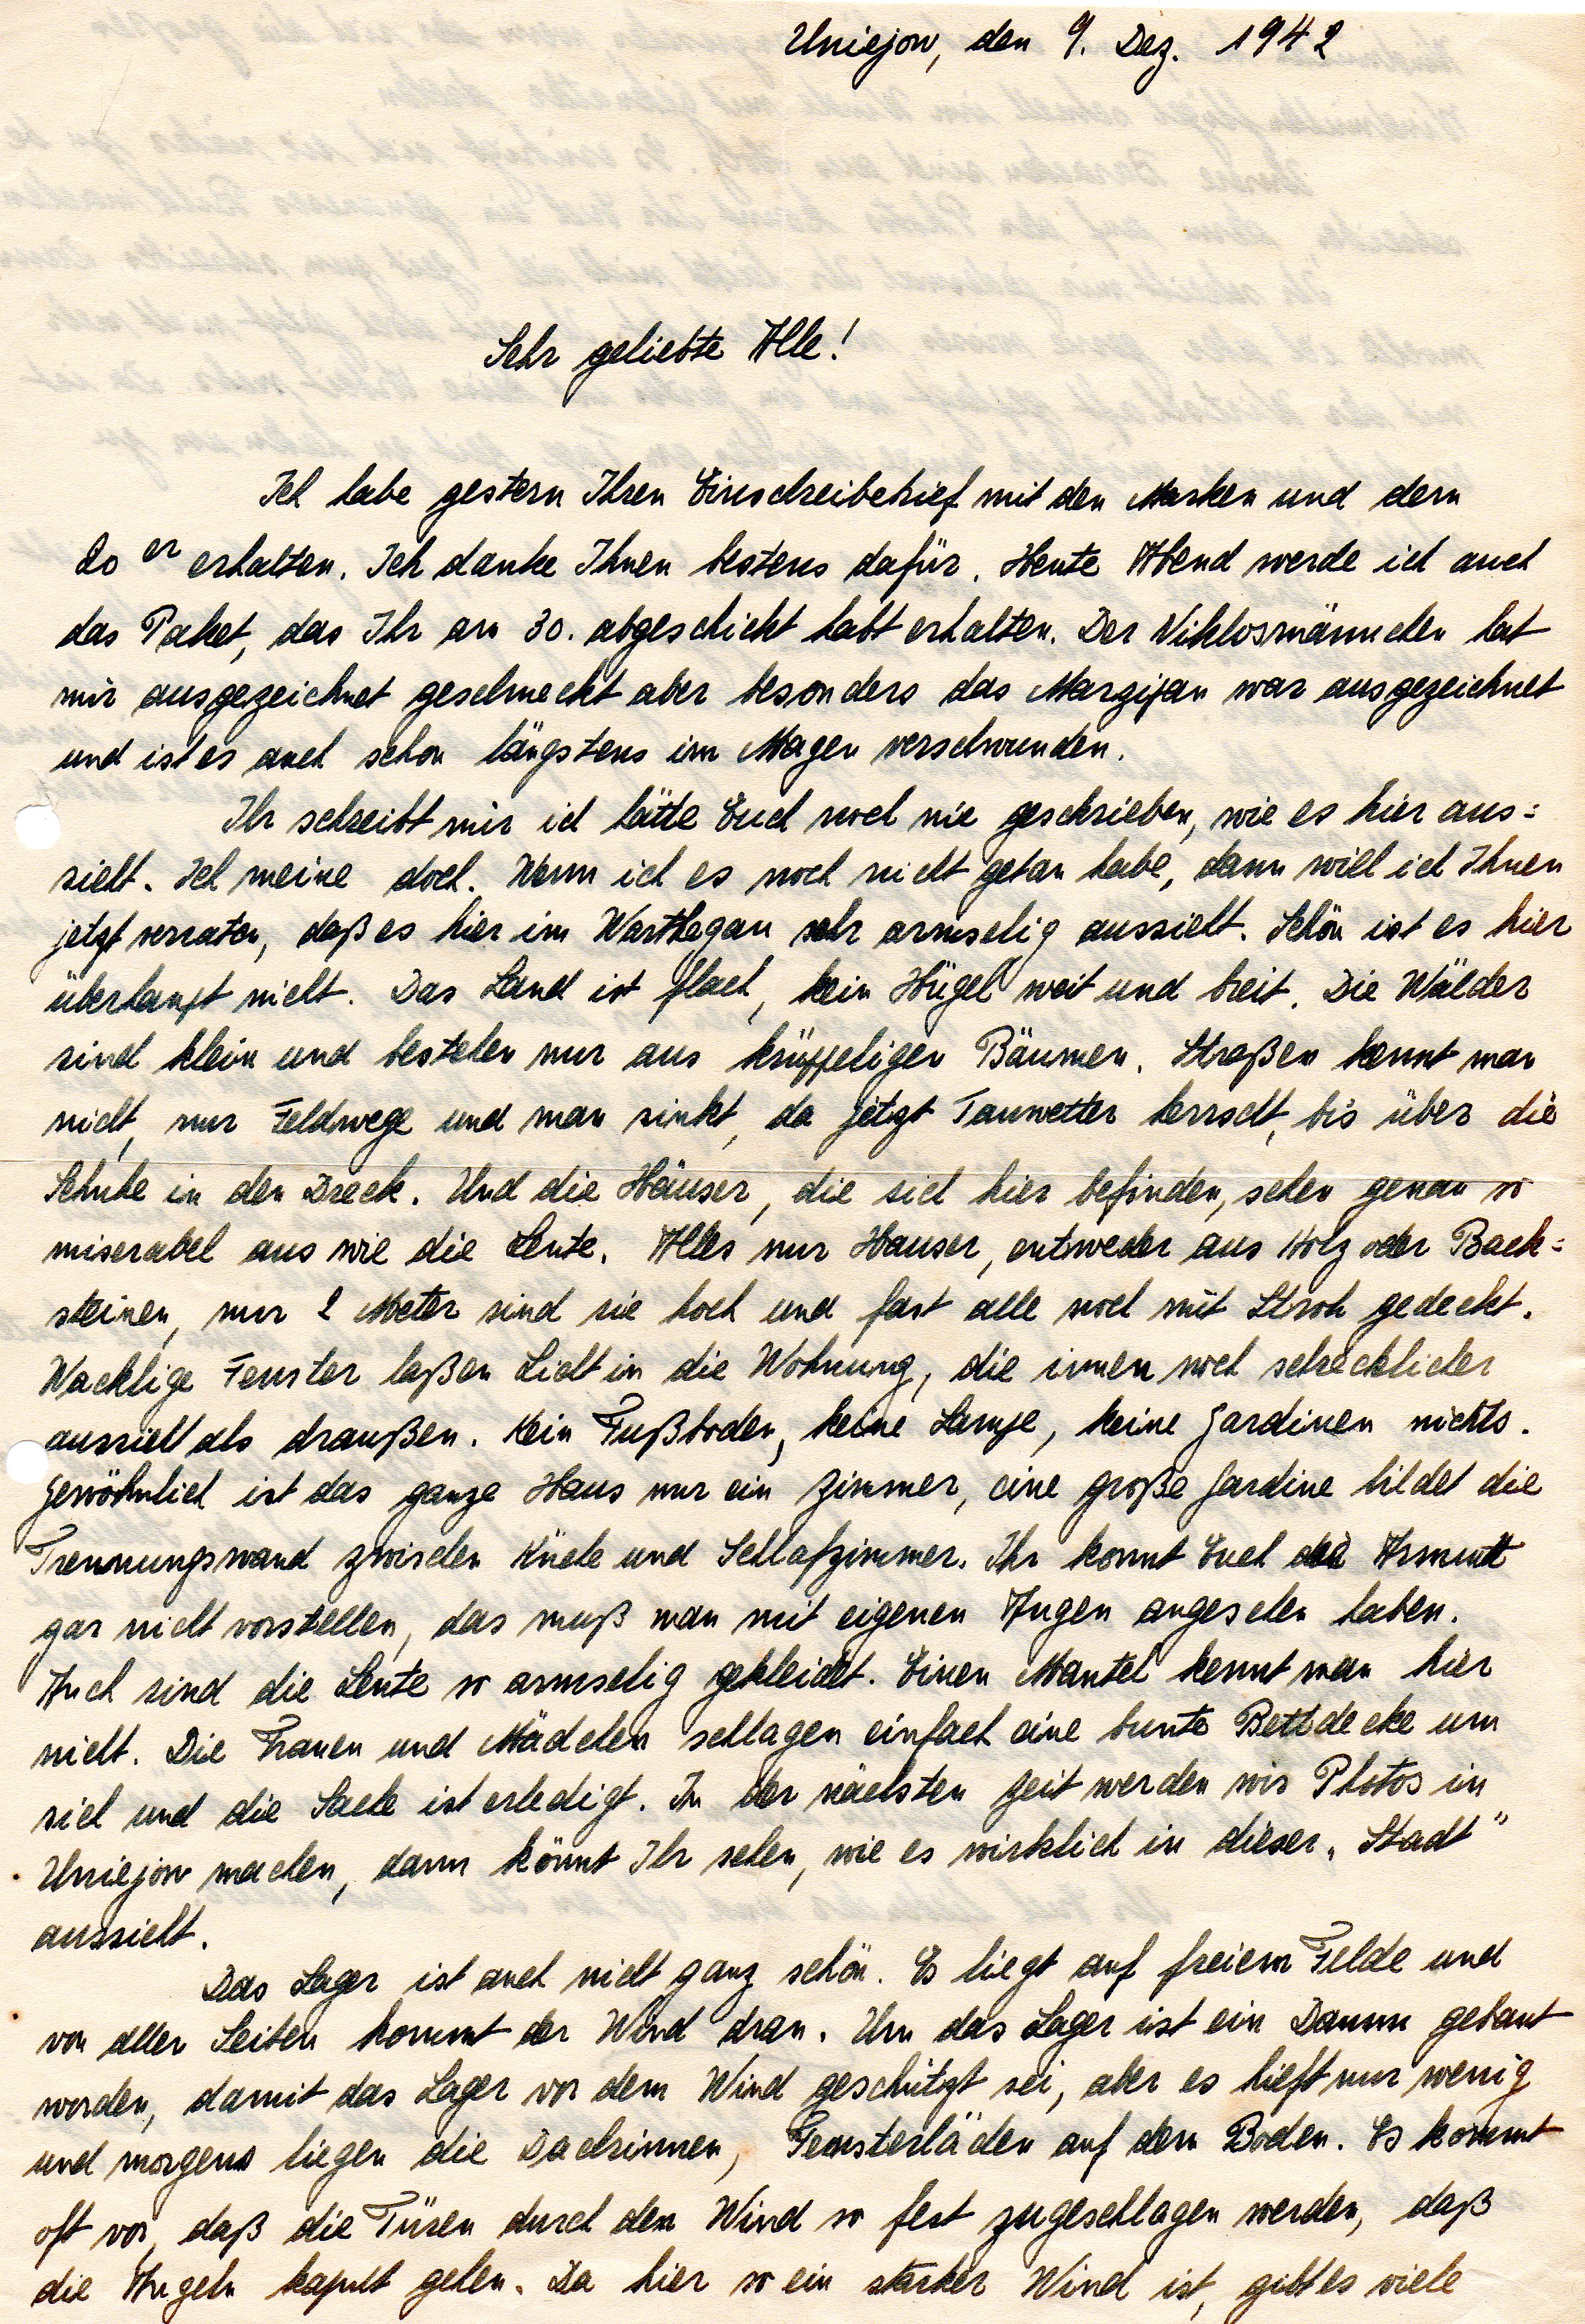 Uniejow, den 9. Dez. 1942
Sehr geliebte Alle!
Ich habe gestern Ihren Einschreibebrief mit den Marken und dem
20 er erhalten. Ich danke Ihnen bestens dafür. Heute Abend werde ich auch
das Paket, das Ihr am 30. abgeschickt habt erhalten. Der Niklosmännchen hat
mir ausgezeichnet geschmeckt aber besonders das Marzipan war ausgezeichnet
und ist es auch schon längstens im Magen verschwunden.
Ihr schreibt mir ich hätte Euch noch nie geschrieben, wie es hier aus=
sieht. Ich meine doch. Wenn ich es noch nicht getan habe, dann will ich Ihnen
jetzt verraten, daß es hier im Warthegau sehr armselig aussieht. Schön ist es hier
überhaupt nicht. Das Land ist flach, kein Hügel weit und breit. Die Wälder
sind klein und bestehen nur aus krüppeligen Bäumen. Straßen kennt man
nicht, nur Feldwege und man sinkt, da jetzt Tauwetter herrscht, bis über die
Schuhe in den Dreck. Und die Häuser, die sich hier befinden, sehen genau so
miserabel aus wie die Leute. Alles nur Hauser, entweder aus Holz oder Back=
steinen, nur 2 Meter sind sie hoch und fast alle noch mit Stroh gedeckt.
Wacklige Fenster laßen Licht in die Wohnung, die innen noch schrecklicher
aussieht als draußen. Kein Fußboden, keine Lampe, keine Gardinen nichts.
Gewöhnlich ist das ganze Haus nur ein Zimmer, eine große Gardine bildet die
Trennungswand zwischen Küche und Schlafzimmer. Ihr konnt Euch die Armutt
gar nicht vorstellen, das muß man mit eigenen Augen angesehen haben.
Auch sind die Leute so armselig gekleidet. Einen Mantel kennt man hier
nicht. Die Frauen und Mädchen schlagen einfach eine bunte Bettdecke um
sich und die Sache ist erledigt. In der nächsten Zeit werden wir Photos in
Uniejow machen, dann könnt Ihr sehen, wie es wirklich in dieser „Stadt"
aussieht.
Das Lager ist auch nicht ganz schön. Es liegt auf freiem Felde und
von allen Seiten kommt der Wind dran. Um das Lager ist ein Damm gebaut
worden, damit das Lager vor dem Wind geschützt sei, aber es hieft nur wenig
und morgens liegen die Dachrinnen, Fensterläden auf dem Boden. Es kommt
oft vor, daß die Türen durch den Wind so fest zugeschlagen werden, daß
die Angeln kaputt gehen. Da hier so ein starker Wind ist, gibt es viele